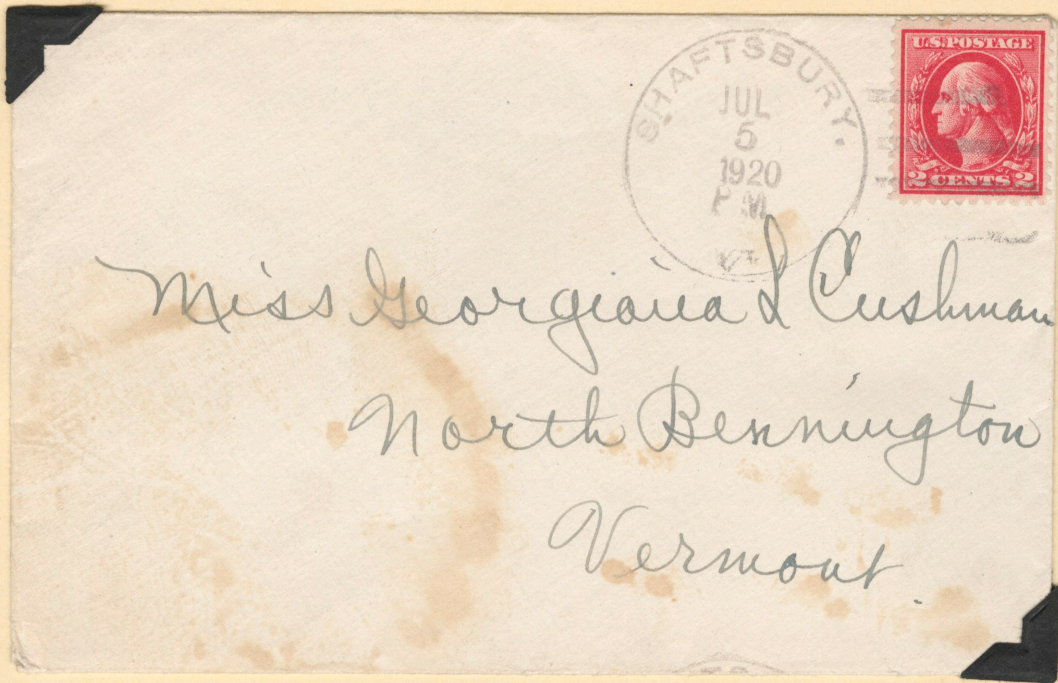 SHAFTSBURY.
JUL
5
1920
P M
U.S. POSTAGE
2 CENTS 2
Miss Georgiana L Cushman
North Bennington
Vermont.